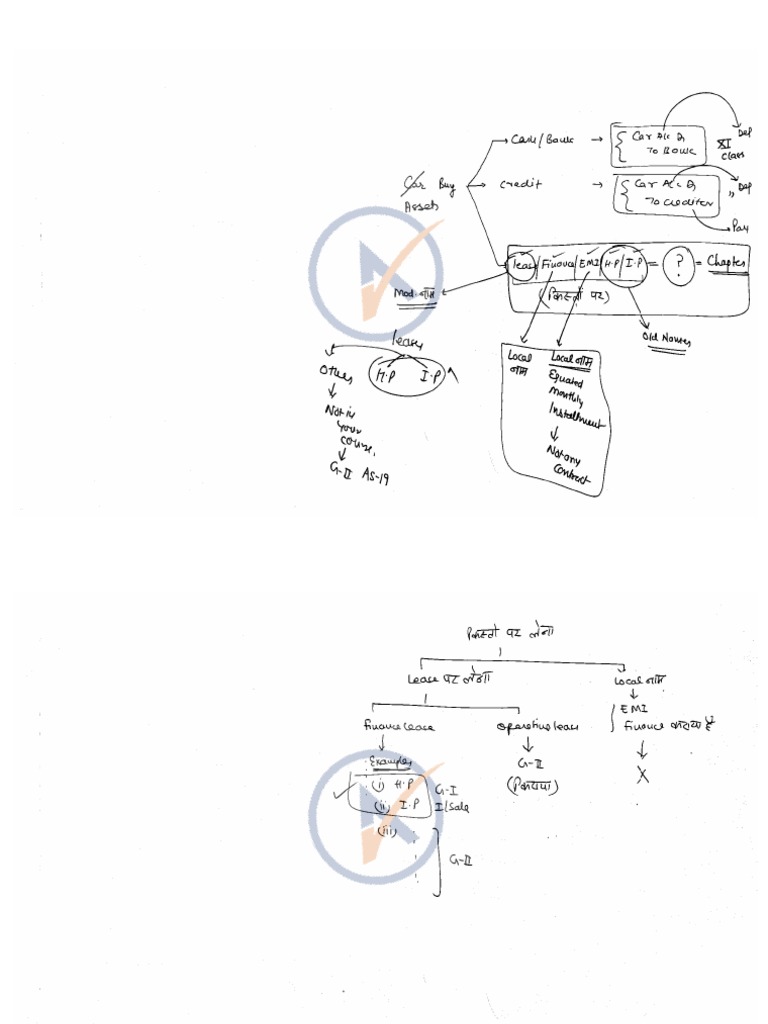 Cash/Bank → { Car A/c Dr → Dep
To Bank
XI class
Car Buy
Assets
Credit → { Car A/c Dr → " Dep
To Creditor → Pay
lease/Finance/EMI/H.P/I.P = ? = Chapter
(किस्तों पर)
Mod. नाम
Old Names
lease
H.P I.P
Others
↓
Not in
your
course.
↓
G-II AS-19
Local
नाम
Local नाम
Equated
monthly
Installment
↓
Not any
Contract
किस्तो पर लेना
Lease पर लेना
Local नाम
↓
EMI
Finance कराया है
↓
X
Finance lease
↓
Examples
(i) H.P
(ii) I.P
G-I
I/Sale
(iii)
G-II
operating lease
↓
G-II
(किराया)